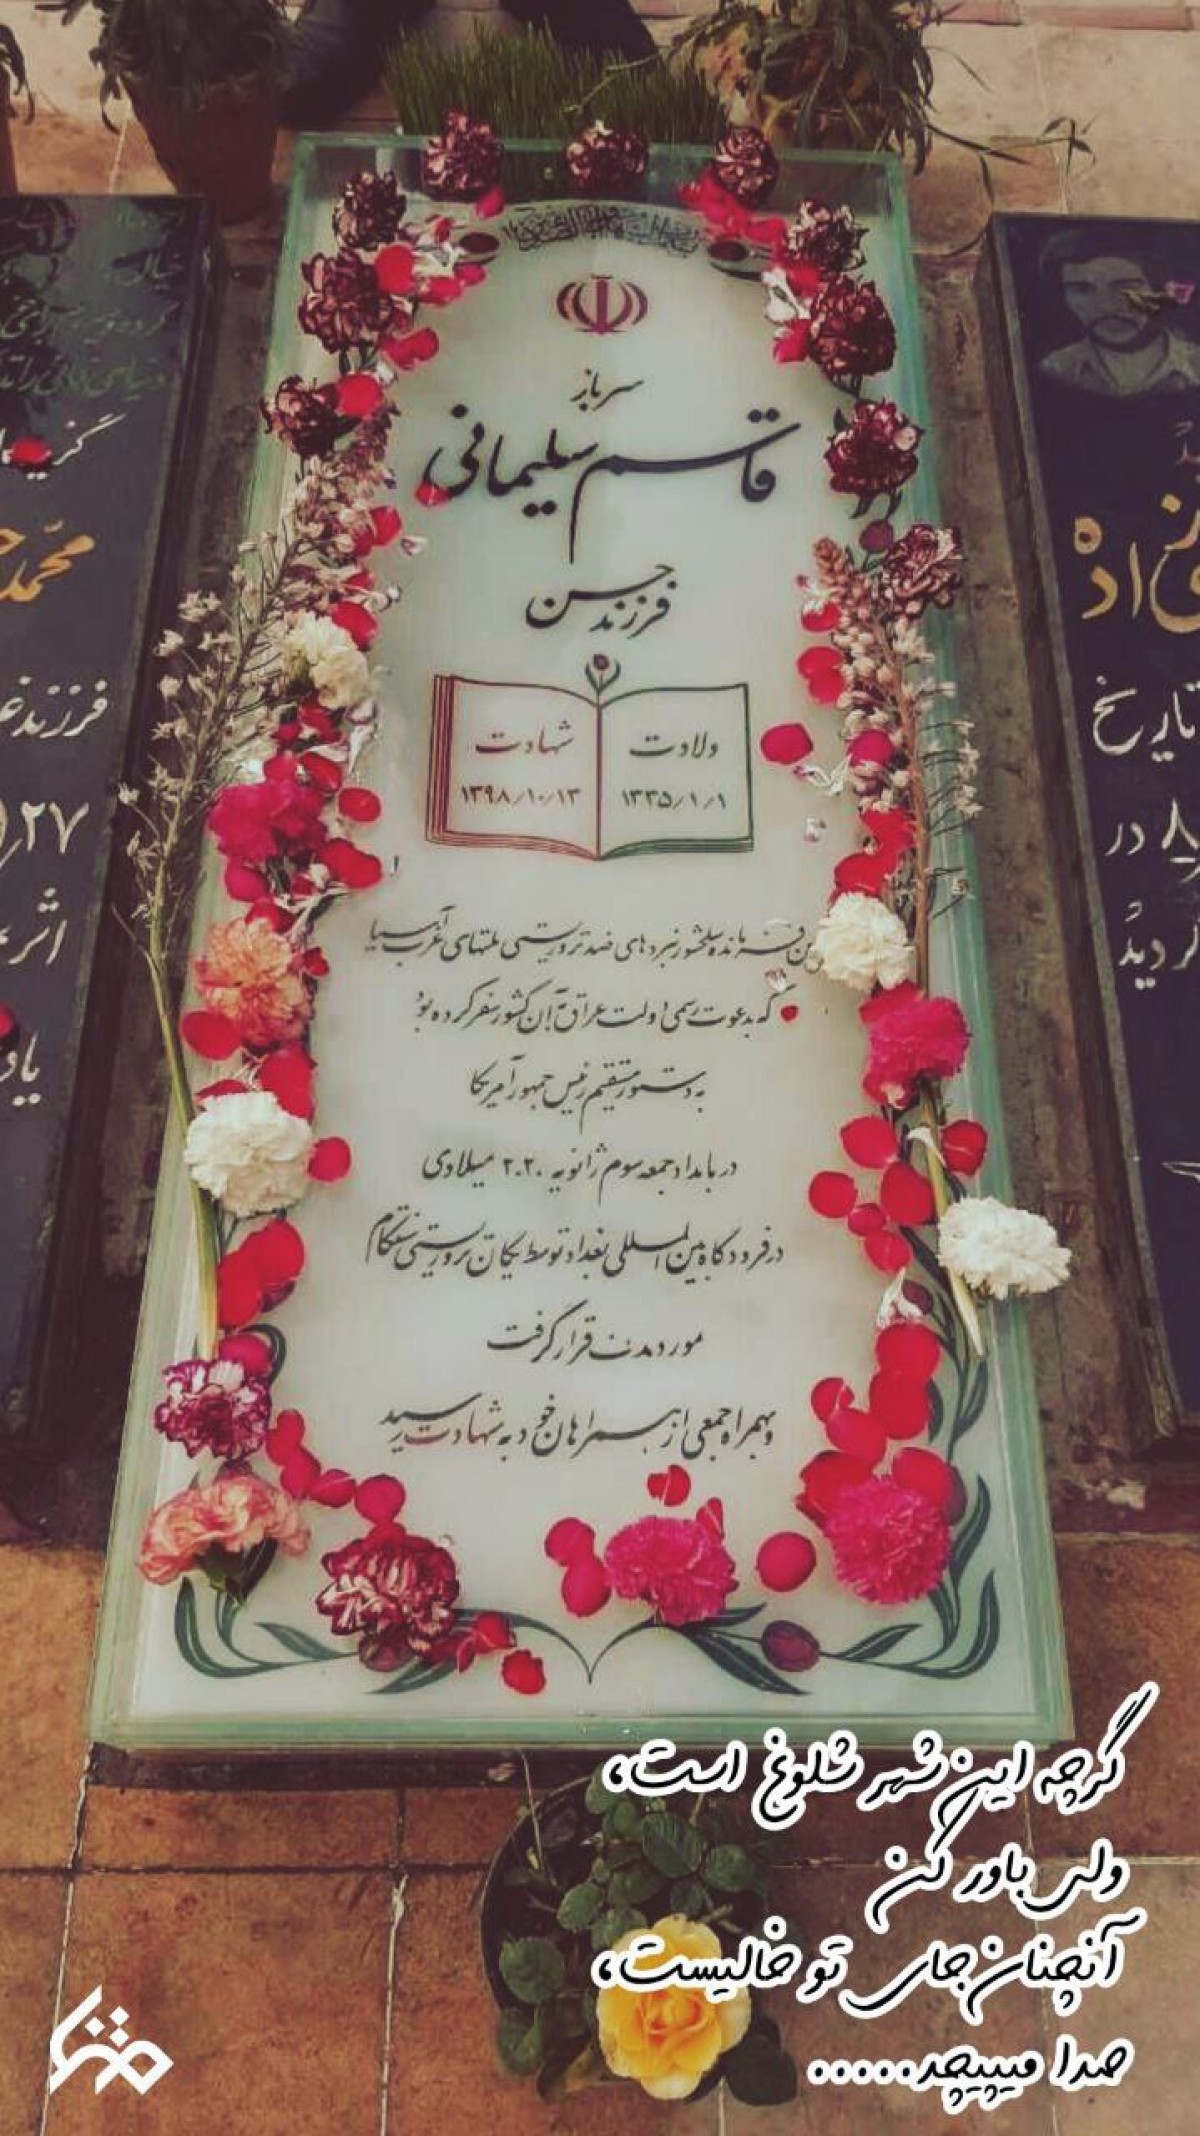 سرباز
قاسم سلیمانی
فرزند حسن
ولادت
۱۳۳۵/۱/۱
شهادت
۱۳۹۸/۱۰/۱۳
فرمانده سلحشور نبردهای ضد تروریستی ملتهای غرب آسیا
که بدعوت رسمی دولت عراق به آن کشور سفر کرده بود
به دستور مستقیم رئیس جمهور آمریکا
در بامداد جمعه سوم ژانویه ۲۰۲۰ میلادی
در فرودگاه بین المللی بغداد توسط یگان تروریستی سنتکام
مورد هدف قرار گرفت
و بهمراه جمعی از همراهان خود به شهادت رسید
محمد
فرزند
۲۷
تاریخ
در
گردید
گرچه این شهر شلوغ است،
ولی باور کن
آنچنان جای تو خالیست،
صدا میپیچد.....